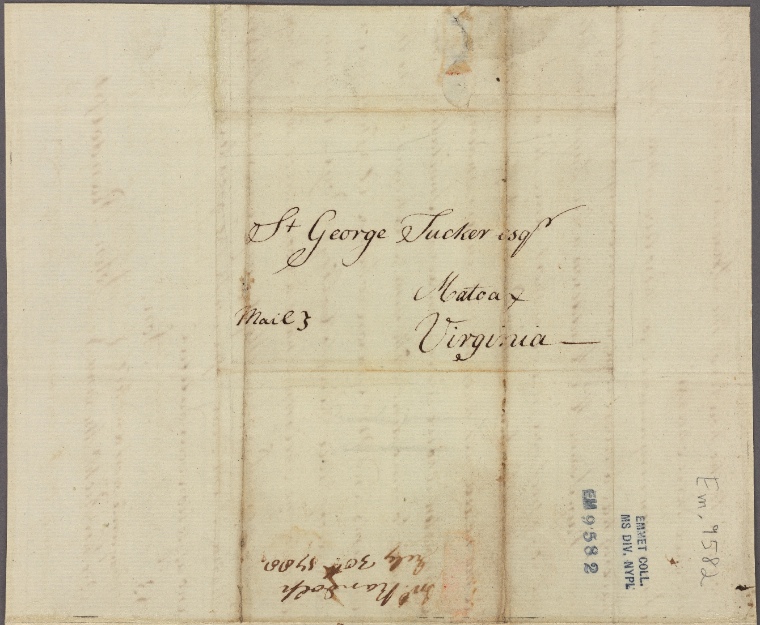 St George Tucker esqr
Matoax
Mail}
Virginia —
Jno Randolph
July 30th 1788.
EM 9582
EMMET COLL.
MS DIV. NYPL
Em. 9582